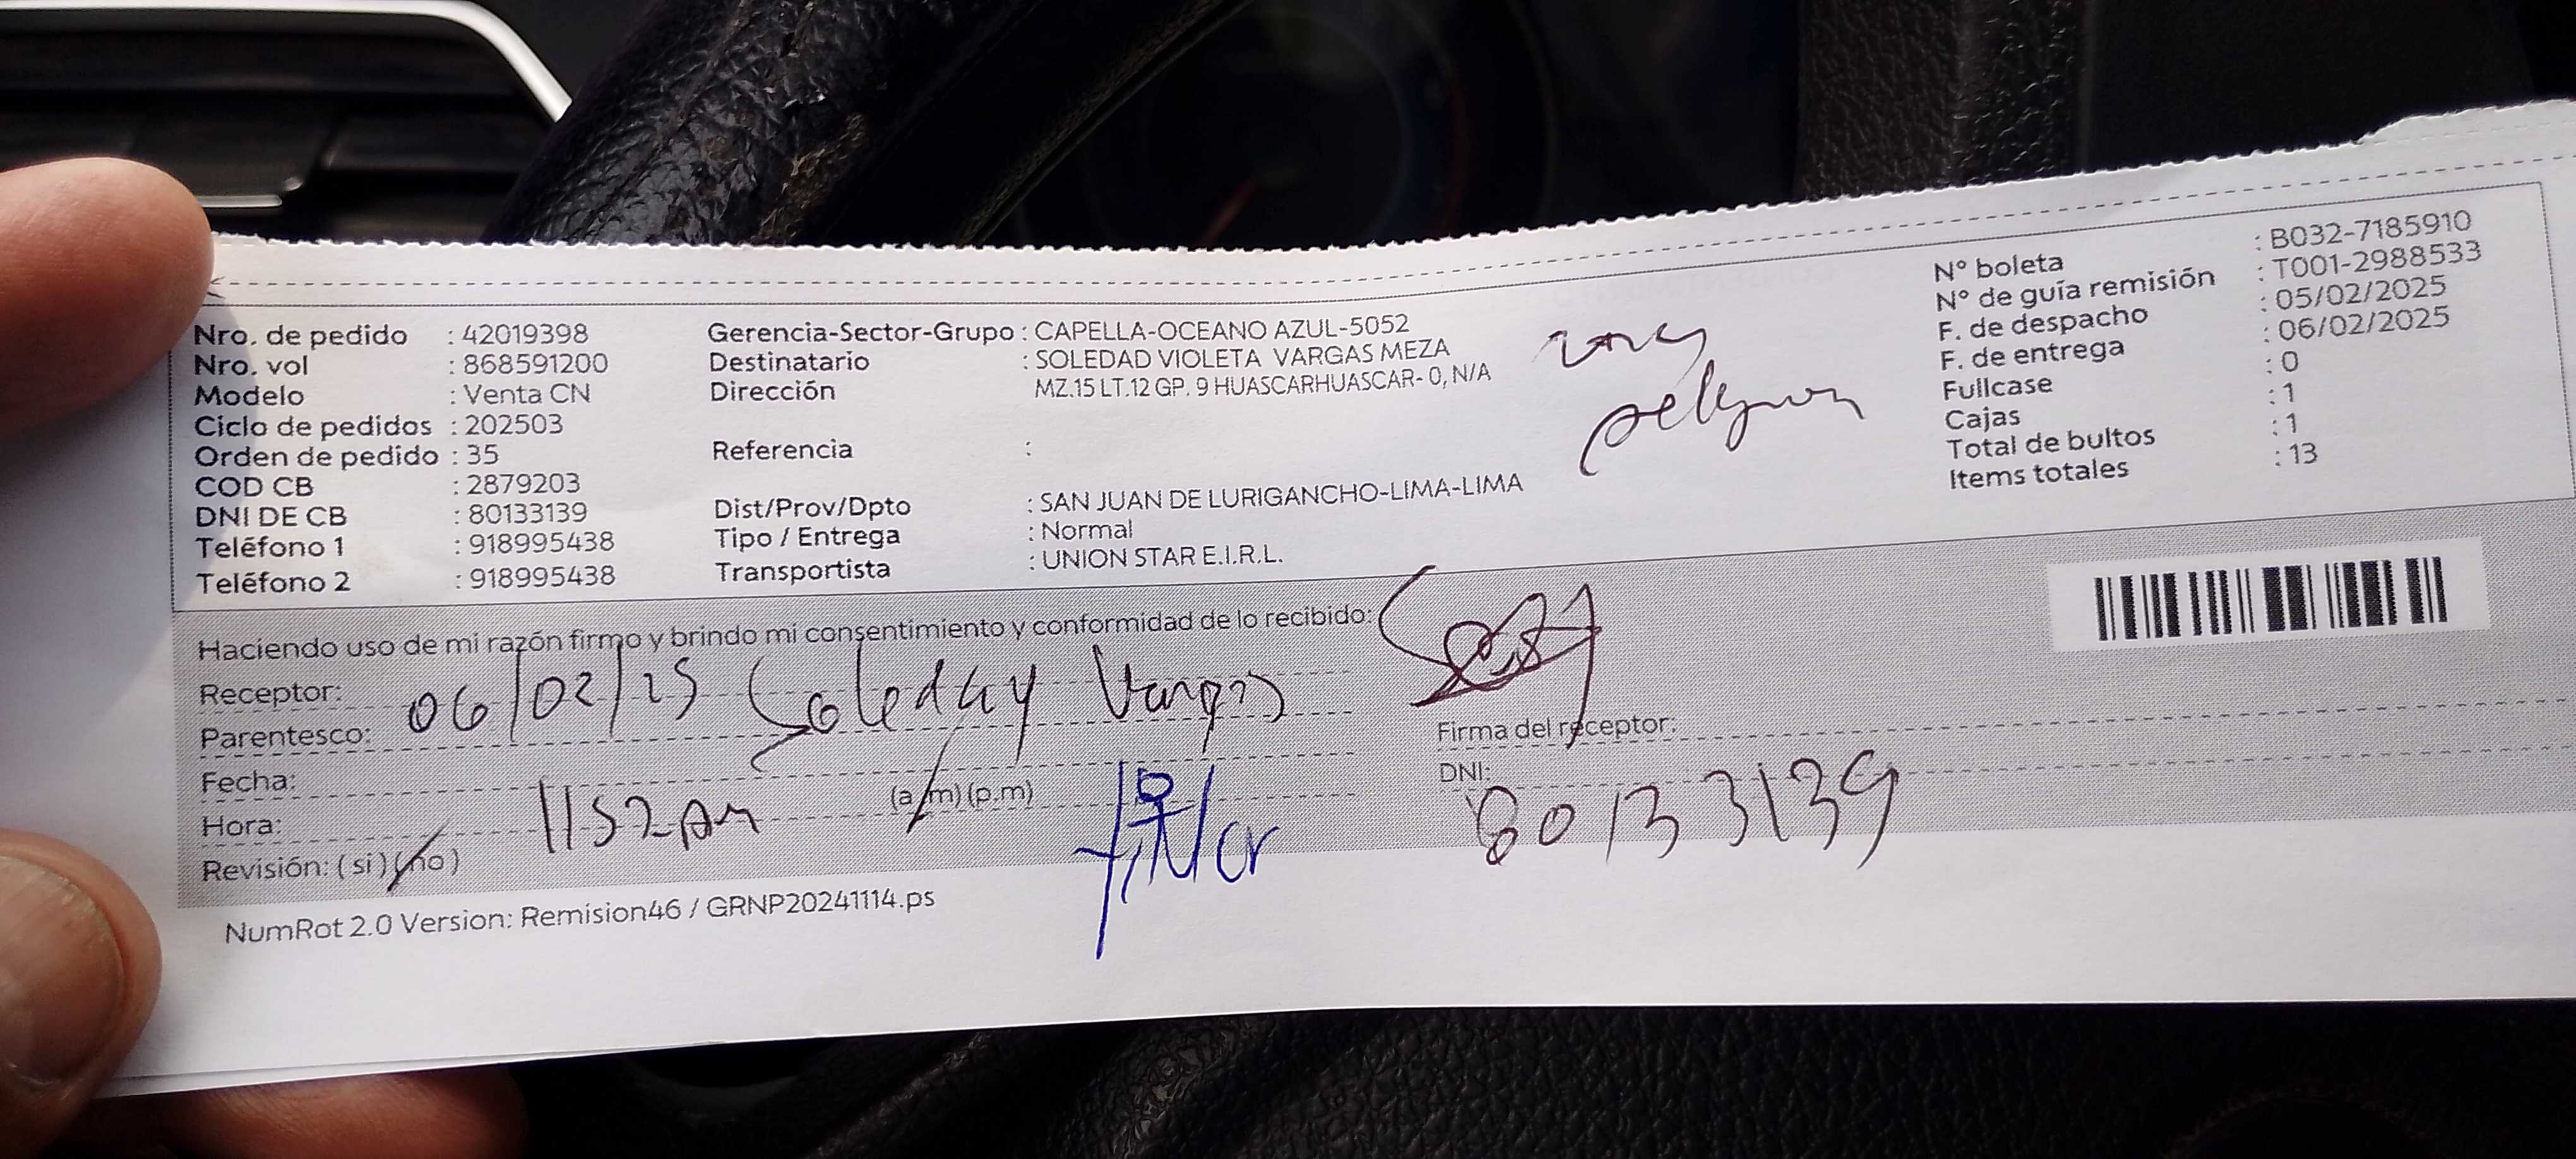 Nro. de pedido : 42019398
Nro. vol : 868591200
Modelo : Venta CN
Ciclo de pedidos : 202503
Orden de pedido : 35
COD CB : 2879203
DNI DE CB : 80133139
Teléfono 1 : 918995438
Teléfono 2 : 918995438
Gerencia-Sector-Grupo : CAPELLA-OCEANO AZUL-5052
Destinatario : SOLEDAD VIOLETA VARGAS MEZA
Dirección MZ.15 LT.12 GP. 9 HUASCARHUASCAR- 0, N/A
Referencia :
Dist/Prov/Dpto : SAN JUAN DE LURIGANCHO-LIMA-LIMA
Tipo / Entrega : Normal
Transportista : UNION STAR E.I.R.L.
N° boleta : B032-7185910
N° de guía remisión : T001-2988533
F. de despacho : 05/02/2025
F. de entrega : 06/02/2025
Fullcase : 0
Cajas : 1
Total de bultos : 1
Items totales : 13
Haciendo uso de mi razón firmo y brindo mi consentimiento y conformidad de lo recibido:
Receptor:
06/02/25 Soleday Vargas
Parentesco:
Firma del receptor:
Fecha:
DNI: 80133139
Hora: 1152 am (a.m) (p.m)
Revisión: ( si ) ( no )
NumRot 2.0 Version: Remision46 / GRNP20241114.ps